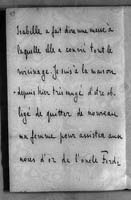 Isabelle a fait dire une messe à
laquelle elle a convié tout le
voisinage. Je suis à la maison
depuis hier très surpris d'être ob-
ligé de quitter de nouveau
ma femme pour assister aux
noces d'or de l'oncle Ferdi